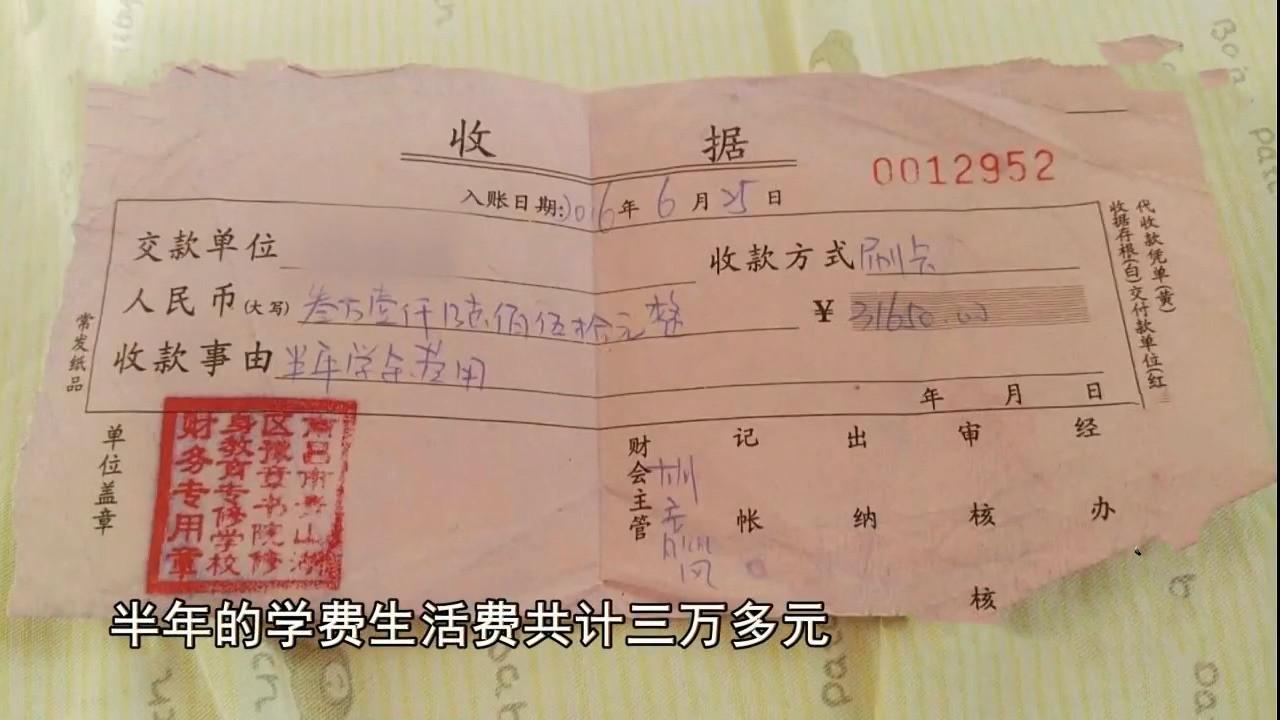 收 据
0012952
入账日期:2016年6月25日
交款单位
收款方式 刷卡
人民币(大写) 叁万壹仟陆佰伍拾元整
¥ 31650.00
收款事由 半年学杂费用
年 月 日
代收款凭单(黄)
收据存根(白)交付款单位(红
常发纸品
单位盖章
南昌青山湖
区豫章书院修
身教育专修学校
财务专用章
财会主管
记帐
出纳
审核
经办
核
半年的学费生活费共计三万多元